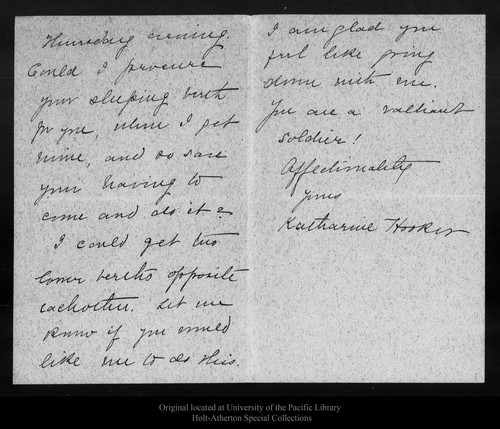 Thursday evening.
Could I procure
your sleeping berth
for you, when I get
mine, and so save
your having to
come and do it?
I could get two
lower berths opposite
each other. Let me
know if you would
like me to do this.
I am glad you
feel like going
down with me.
You are a valliant
soldier!
Affectionately
yours
Katharine Hooker
Original located at University of the Pacific Library
Holt-Atherton Special Collections